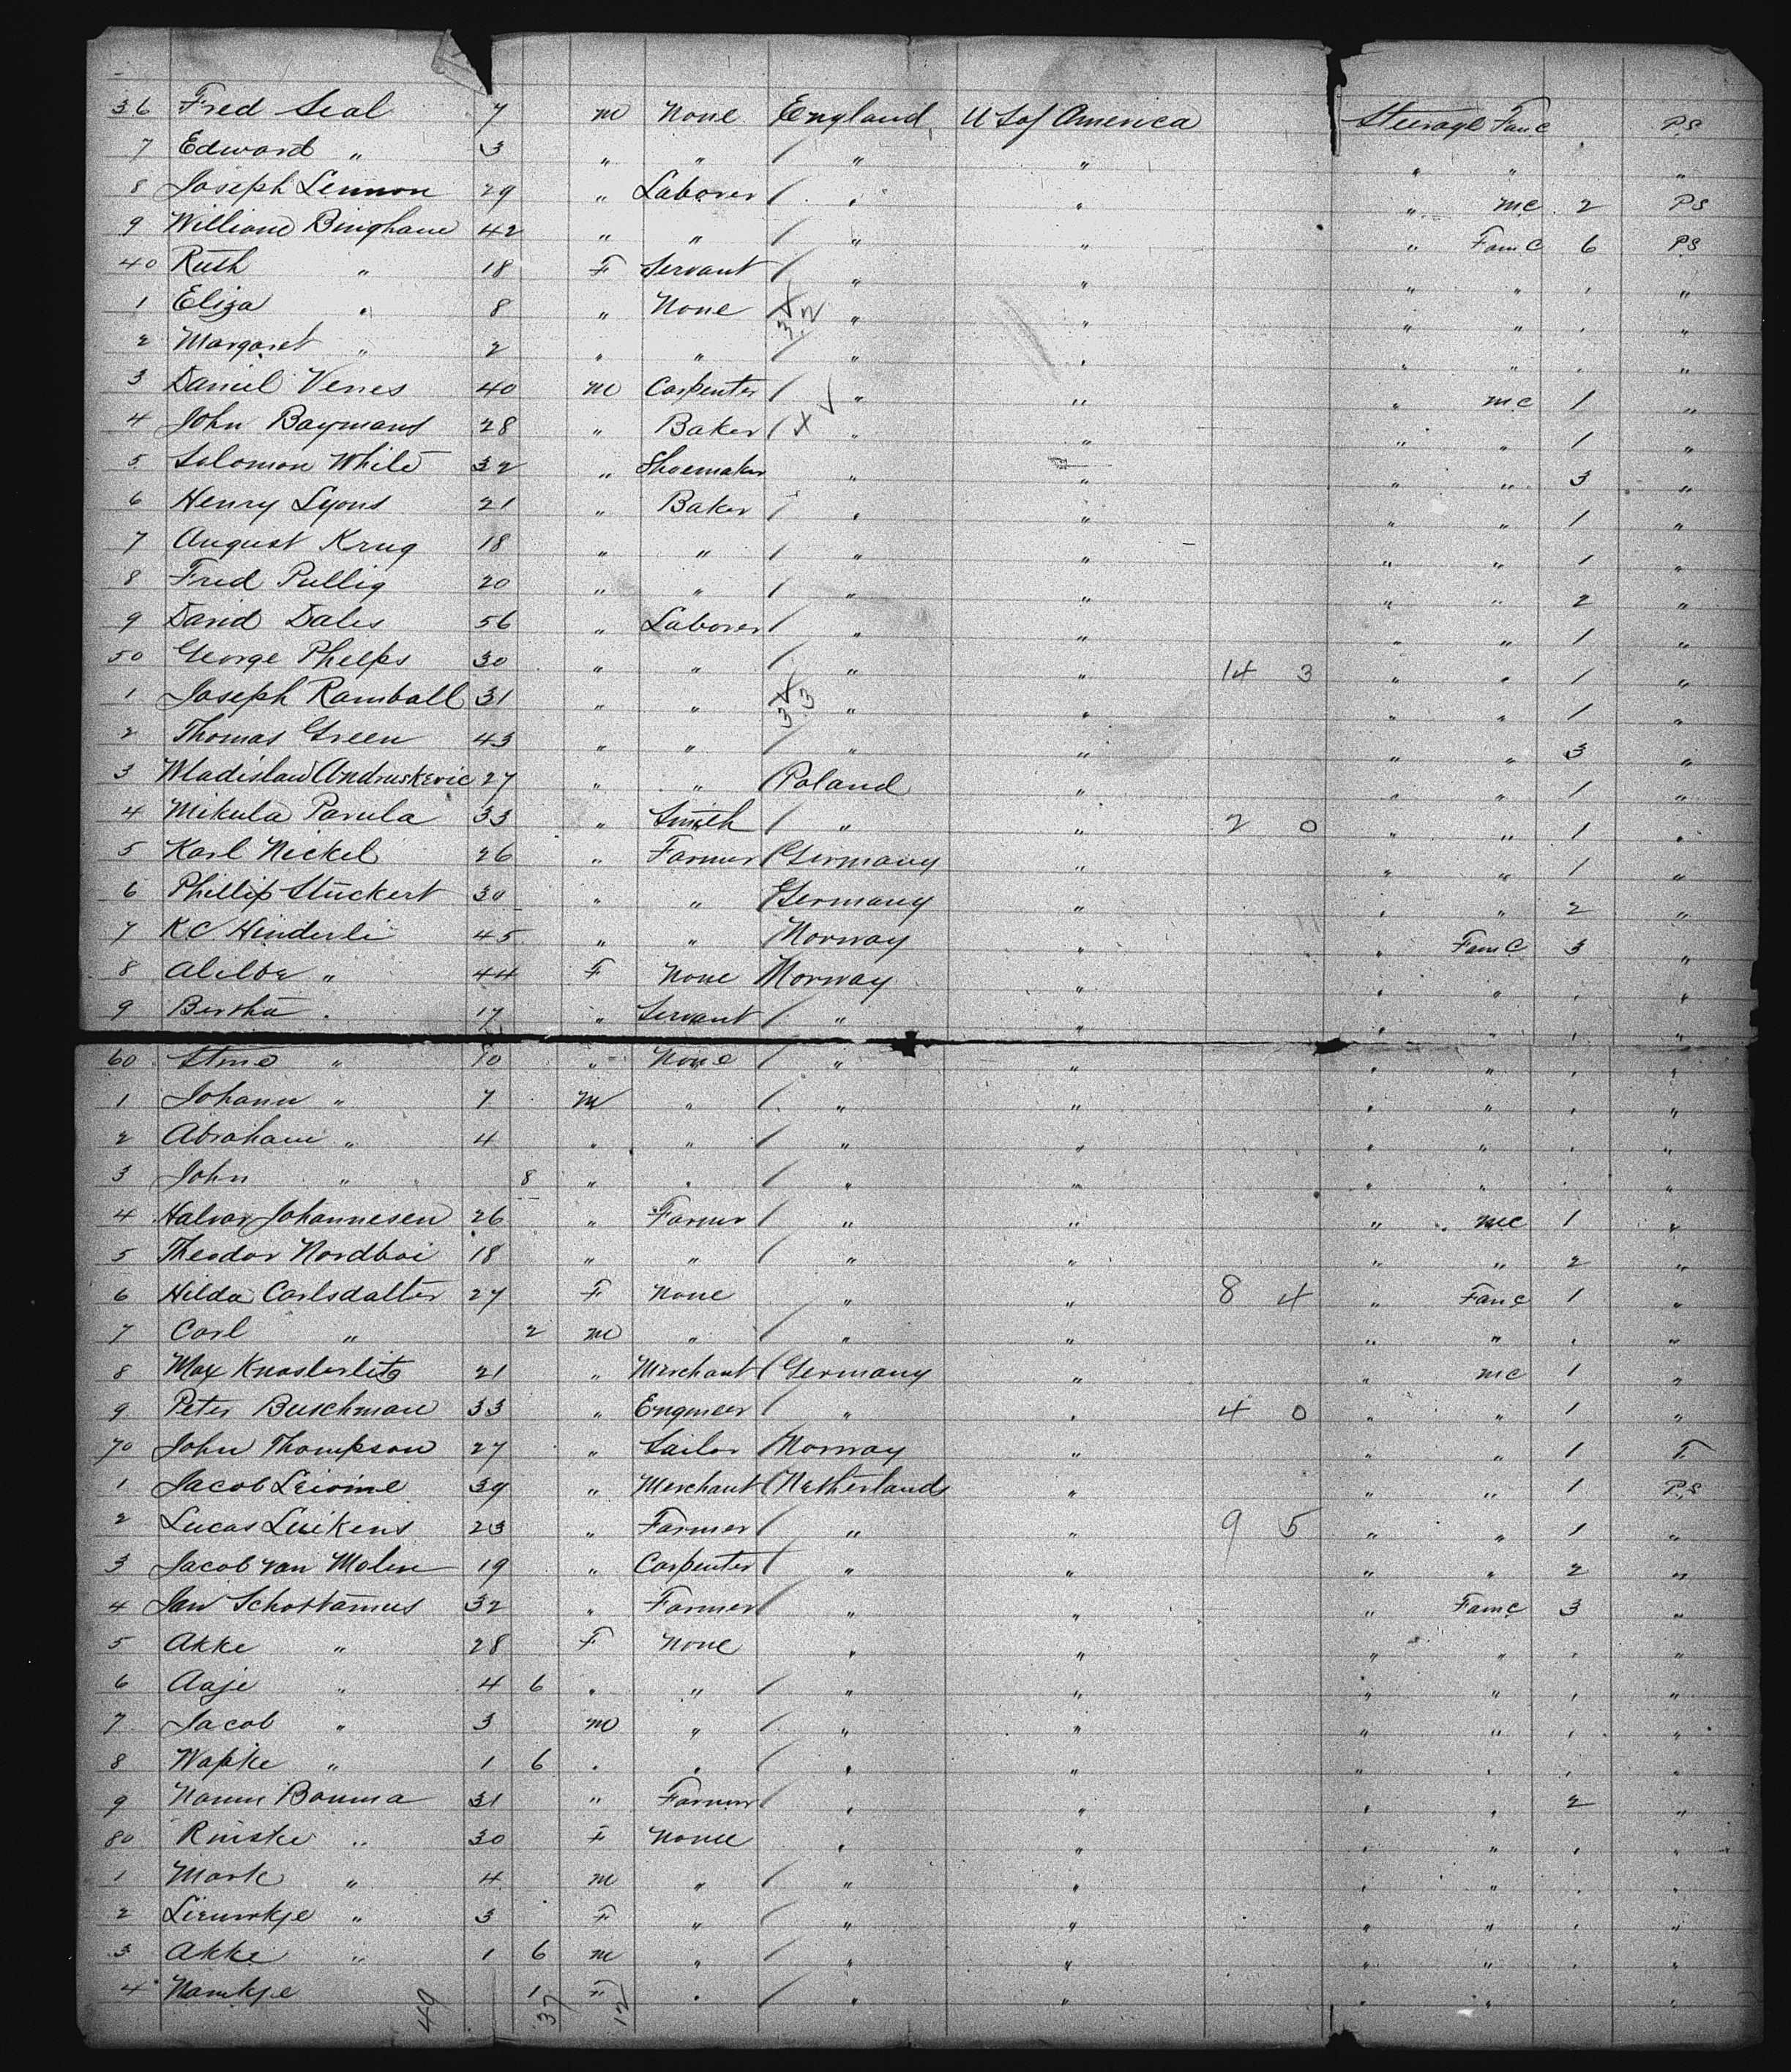 36 Fred Seal 7 m None England U S of America Steerage Fam C PS
7 Edward " 3 " " / " " " " "
8 Joseph Lennon 29 " Laborer / " " " m.c 2 PS
9 William Bingham 42 " " / " " " Fam C 6 PS
40 Ruth " 18 F Servant / " " " " " "
1 Eliza " 8 " None X 32 " " " " " "
2 Margaret " 2 " " / " " " " " "
3 Daniel Venes 40 m Carpenter / " " " m.c 1 "
4 John Baymans 28 " Baker / X √ " " " " 1 "
5 Solomon White 32 " Shoemaker " " " " 3 "
6 Henry Lyons 21 " Baker / " " " " 1 "
7 August Krug 18 " " / " " " " 1 "
8 Fred Pullig 20 " " / " " " " 2 "
9 David Dales 56 " Laborer / " " " " 1 "
50 George Phelps 30 " " / " " 14 3 " " 1 "
1 Joseph Ramball 31 " " X 33 " " " " 1 "
2 Thomas Green 43 " " / " " " " 3 "
3 Wladislaw Andruskevic 27 " " / Poland " " " 1 "
4 Mikula Parula 33 " Smith / " " 2 0 " " 1 "
5 Karl Nickel 26 " Farmer / Germany " " " 1 "
6 Phillip Stuckert 30 " " Germany " " " 2 "
7 K C Hinderli 45 " " Norway " " Fam C 3 "
8 " 44 F None Norway " " " " "
9 Bertha " 17 " Servant / " " " " " "
60 Stine " 10 " None / " " " " " "
1 Johann " 7 m " / " " " " " "
2 Abraham " 4 " " / " " " " " "
3 John " 8 " " / " " " " " "
4 Halvor Johannesen 26 " Farmer / " " " m.c 1 "
5 Theodor Nordboi 18 " " / " " " " 2 "
6 Hilda Carlsdatter 27 F None " " 8 4 " Fam C 1 "
7 Carl " 2 m " / " " " " " "
8 Max 21 " Merchant / Germany " " m c 1 "
9 Peter Buschman 33 " Engineer / " " 4 0 " " 1 "
70 John Thompson 27 " Sailor / Norway " " " 1 T
1 Jacob 39 " Merchant / Netherlands " " " 1 P.S
2 Lucas Luikens 23 " Farmer / " " 9 5 " " 1 "
3 Jacob van Molen 19 " Carpenter / " " " " 2 "
4 Jan Schottamus 32 " Farmer / " " " Fam C 3 "
5 Akke " 28 F None " " " " " "
6 Aaje " 4 6 " " / " " " " " "
7 Jacob " 3 m " / " " " " " "
8 Wapke " 1 6 " " / " " " " " "
9 Bouma 31 " Farmer / " " " " 2 "
80 Rinske " 30 F None " " " " " "
1 Mark " 4 m " / " " " " " "
2 Lieuwkje " 3 F " / " " " " " "
3 Akke " 1 6 m " / " " " " " "
4 Namkje 1 F " / " " " " "
49 37 12